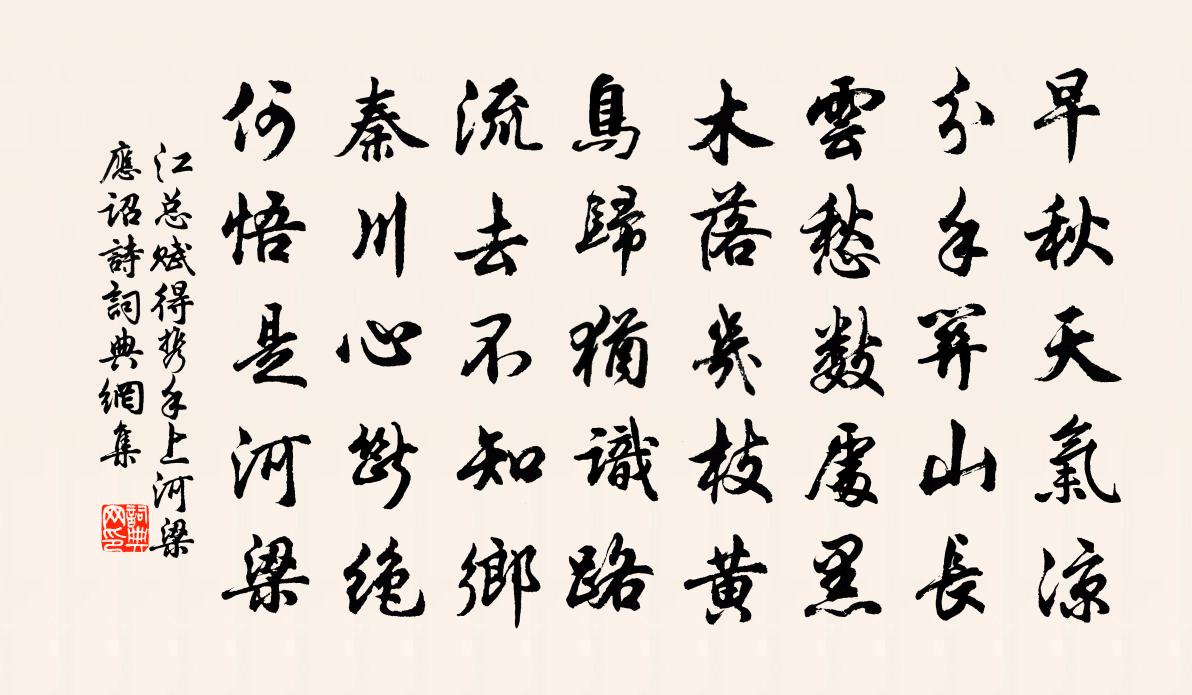 早秋天氣涼
分手關山長
雲愁數處黑
木落幾枝黃
鳥歸猶識路
流去不知鄉
秦川心斷絕
何悟是河梁
江总赋得携手上河梁
應詔詩詞典網集
詞典网印